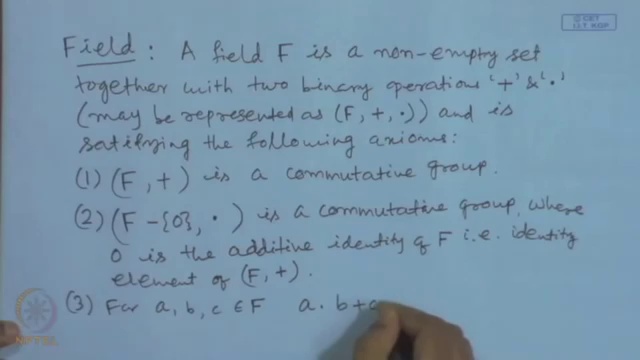 © CET
I.I.T. KGP
Field : A field F is a non-empty set
together with two binary operations '+' & '.'
(may be represented as (F, +, .)) and is
satisfying the following axioms:
(1) (F, +) is a commutative group.
(2) (F - {0}, .) is a commutative group, where
0 is the additive identity of F i.e. identity
element of (F, +).
(3) For a, b, c ∈ F a. b+c
NPTEL